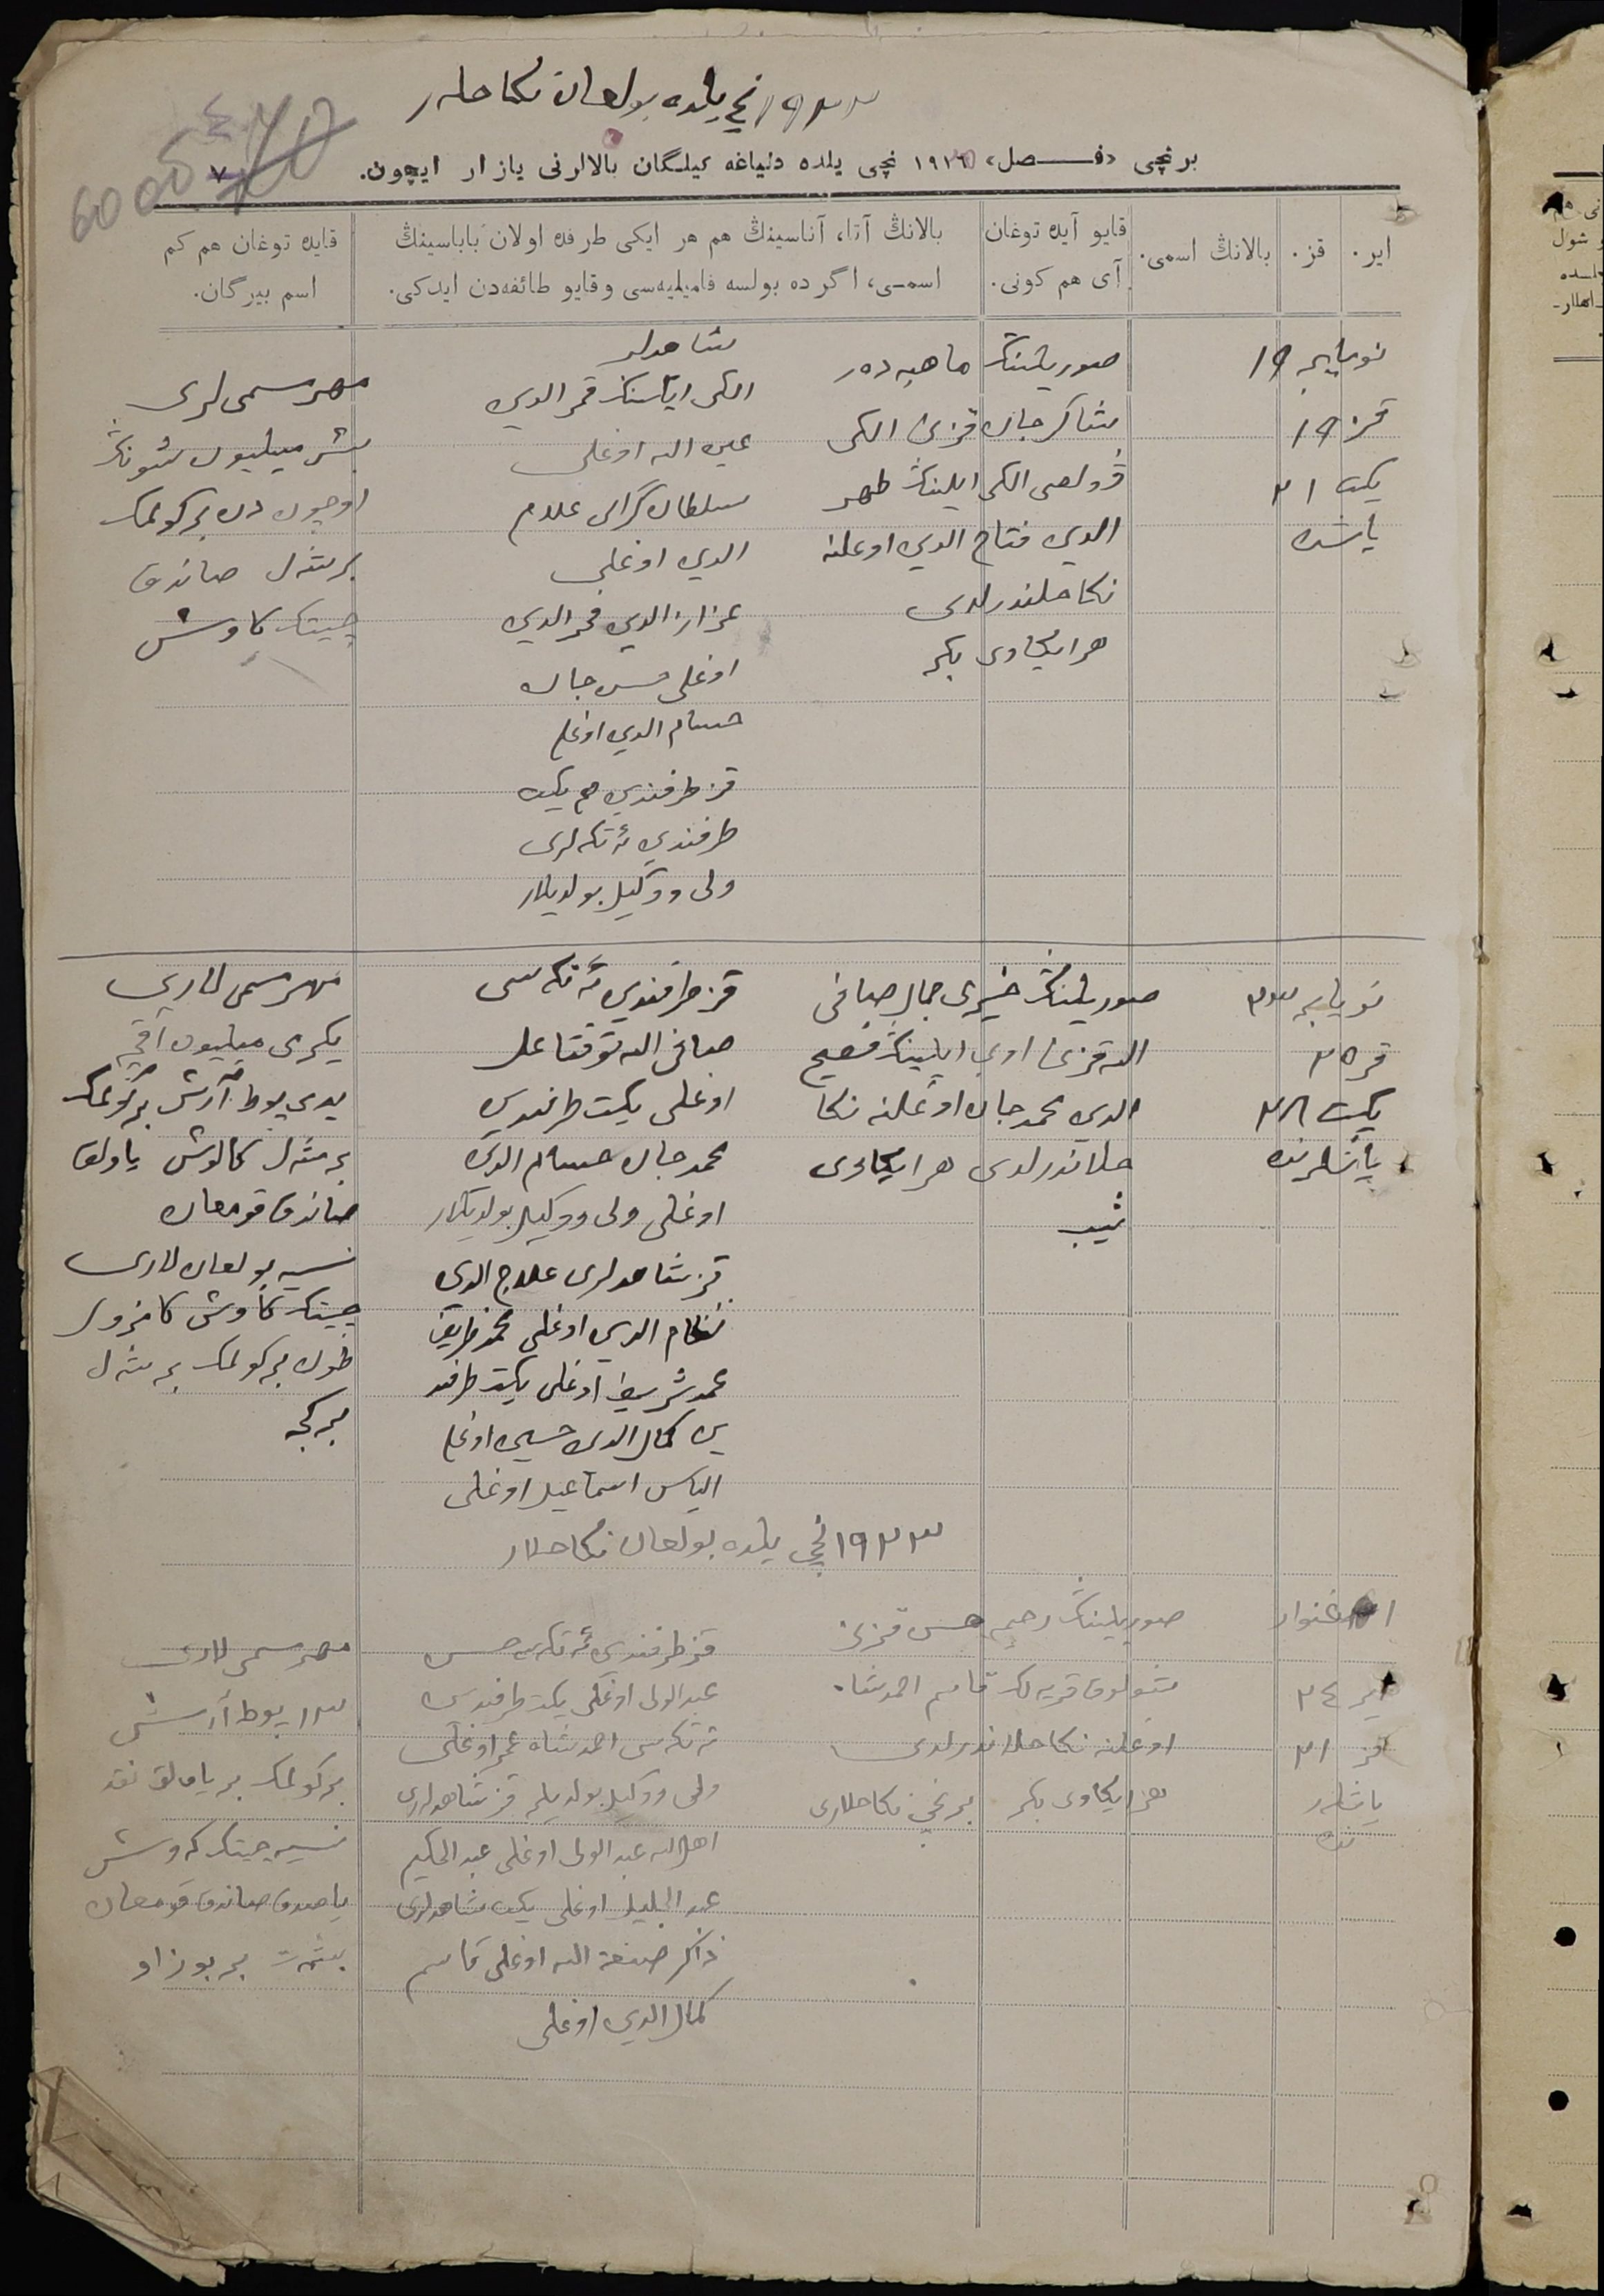 ١٩٢٢ نچی یلده بولغان نکاحلر
برنچی «فصل» ١٩١٦ نچی یلده دنیاغه کیلگان بالالرنی یازار ایچون.
٧
ایر.
قز.
بالانڭ اسمی.
قایو آیده توغان
آی هم کونی.
بالانڭ آتا، آناسینڭ هم هر ایکی طرفده اولان باباسینڭ
اسمی، اگرده بولسه فامیلیه‌سی و قایو طائفه‌دن ایدکی.
قایده توغان هم کم
اسم بیرگان.
نویابر ١٩
قز ١٩
یکت ٢١
یاشده
صوریلینڭ ماهبدر
شاکرجان قزی الکی
الکی ایلینڭ ظهر
الدین فتاح الدین اوغلنه
نکاحلندرلدی
هر ایکاوی بکر
شاهدلر
الکی ایلینڭ قمر الدین
عین الله اوغلی
سلطان گرای علام
الدین اوغلی
فخر الدین
اوغلی جان
حسام الدین اوغلی
قز طرفندن هم یکت
طرفندن ئەتکەلری
ولی و وکیل بولدیلار
مهر مسمی لری
بش میلیون شونڭ
اوچون دن بر کولمک
بر شل صاندق
چیتک کاوش
نویابر ٢٣
قز ٢٥
یکت ٢٨
یاشلرنده
صوریلینڭ خیری جمال صافی
الله قزی اوی ایلینڭ فصیح
الدین محمدجان اوغلنه نکا
حلاندرلدی هر ایکاوی
ثیب
قز طرفندن ئەتکەسی
صافی الله توقتا علی
اوغلی یکت طرفندن
محمدجان حسام الدین
اوغلی ولی و وکیل بولدیلار
قز شاهدلری علاج الدین
نظام الدین اوغلی محمد ظریف
محمد شریف اوغلی یکت طرفند
ین کمال الدین حسین اوغلی
الیاس اسماعیل اوغلی
مهر مسمی لاری
یکرمی میلیون آقچه
یدی پوط آرش بر کولمک
بر شل کالوش یاولق
صاندق قومغان
نسیه بولغان لاری
چیتک کاوش کامزول
طون بر کولمک بر شل
بر کجه
١٩٢٣ نچی یلده بولغان نکاحلار
غنوار
ایر ٢٤
قز ٢١
یاشلر
نده
صوریلینڭ رحیمه حسن قزی
قریه لک قاسم احمدشاه
اوغلنه نکاحلاندرلدی
هر ایکاوی بکر برنچی نکاحلاری
قز طرفندن ئەتکەسی حسن
عبد الولی اوغلی یکت طرفندن
ئەتکەسی احمدشاه عمر اوغلی
ولی و وکیل بولدیلر قز شاهدلری
اهل الله عبد الولی اوغلی عبد الحکیم
عبد الجلیل اوغلی یکت شاهدلری
ذاکر صبغة الله اوغلی قاسم
کمال الدین اوغلی
مهر مسمی لاری
١٣ پوط آرش
بر کولمک بر یاولق نقد
نسیه چیتک کەوش
یاصدق صاندق قومغان
بشمت بر بوزاو